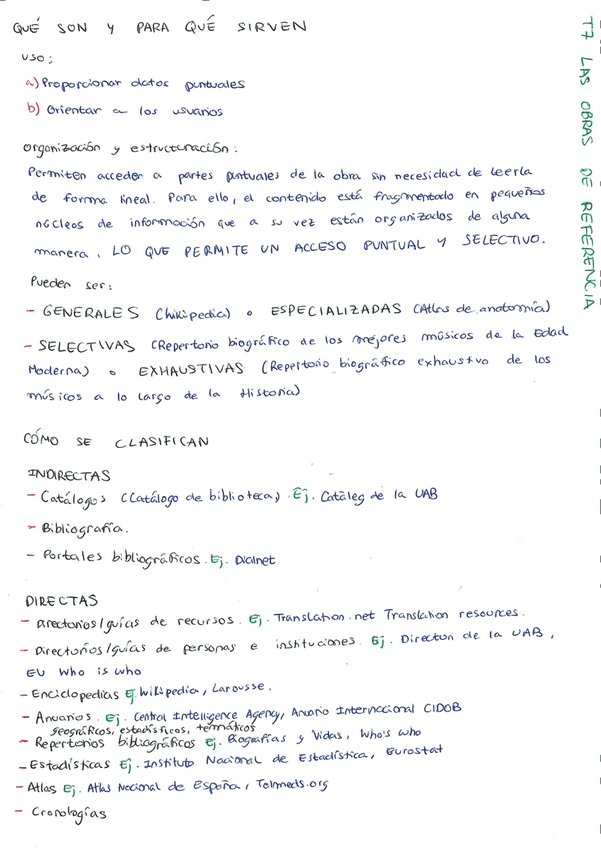 T7 LAS OBRAS DE REFERENCIA
QUÉ SON Y PARA QUÉ SIRVEN
USO:
a) Proporcionar datos puntuales
b) Orientar a los usuarios
Organización y estructuración:
Permiten acceder a partes puntuales de la obra sin necesidad de leerla
de forma lineal. Para ello, el contenido está fragmentado en pequeños
núcleos de información que a su vez están organizados de alguna
manera, LO QUE PERMITE UN ACCESO PUNTUAL Y SELECTIVO.
Pueden ser:
- GENERALES (Wikipedia) o ESPECIALIZADAS (Atlas de anatomía)
- SELECTIVAS (Repertorio biográfico de los mejores músicos de la Edad
Moderna) o EXHAUSTIVAS (Repertorio biográfico exhaustivo de los
músicos a lo largo de la Historia)
CÓMO SE CLASIFICAN
INDIRECTAS
- Catálogos (Catálogo de biblioteca) Ej. Catàleg de la UAB
- Bibliografía.
- Portales bibliográficos. Ej. Dialnet
DIRECTAS
- Directorios/guías de recursos. Ej. Translation.net Translation resources.
- Directorios/guías de personas e instituciones. Ej. Directori de la UAB,
EU Who is who
- Enciclopedias Ej. Wikipedia, Larousse.
- Anuarios. Ej. Central Intelligence Agency, Anuario Internacional CIDOB
geográficos, estadísticos, temáticos
- Repertorios bibliográficos Ej. Biografías y Vidas, Who's who
- Estadísticas Ej. Instituto Nacional de Estadística, Eurostat
- Atlas Ej. Atlas Nacional de España, Telmeds.org
- Cronologías